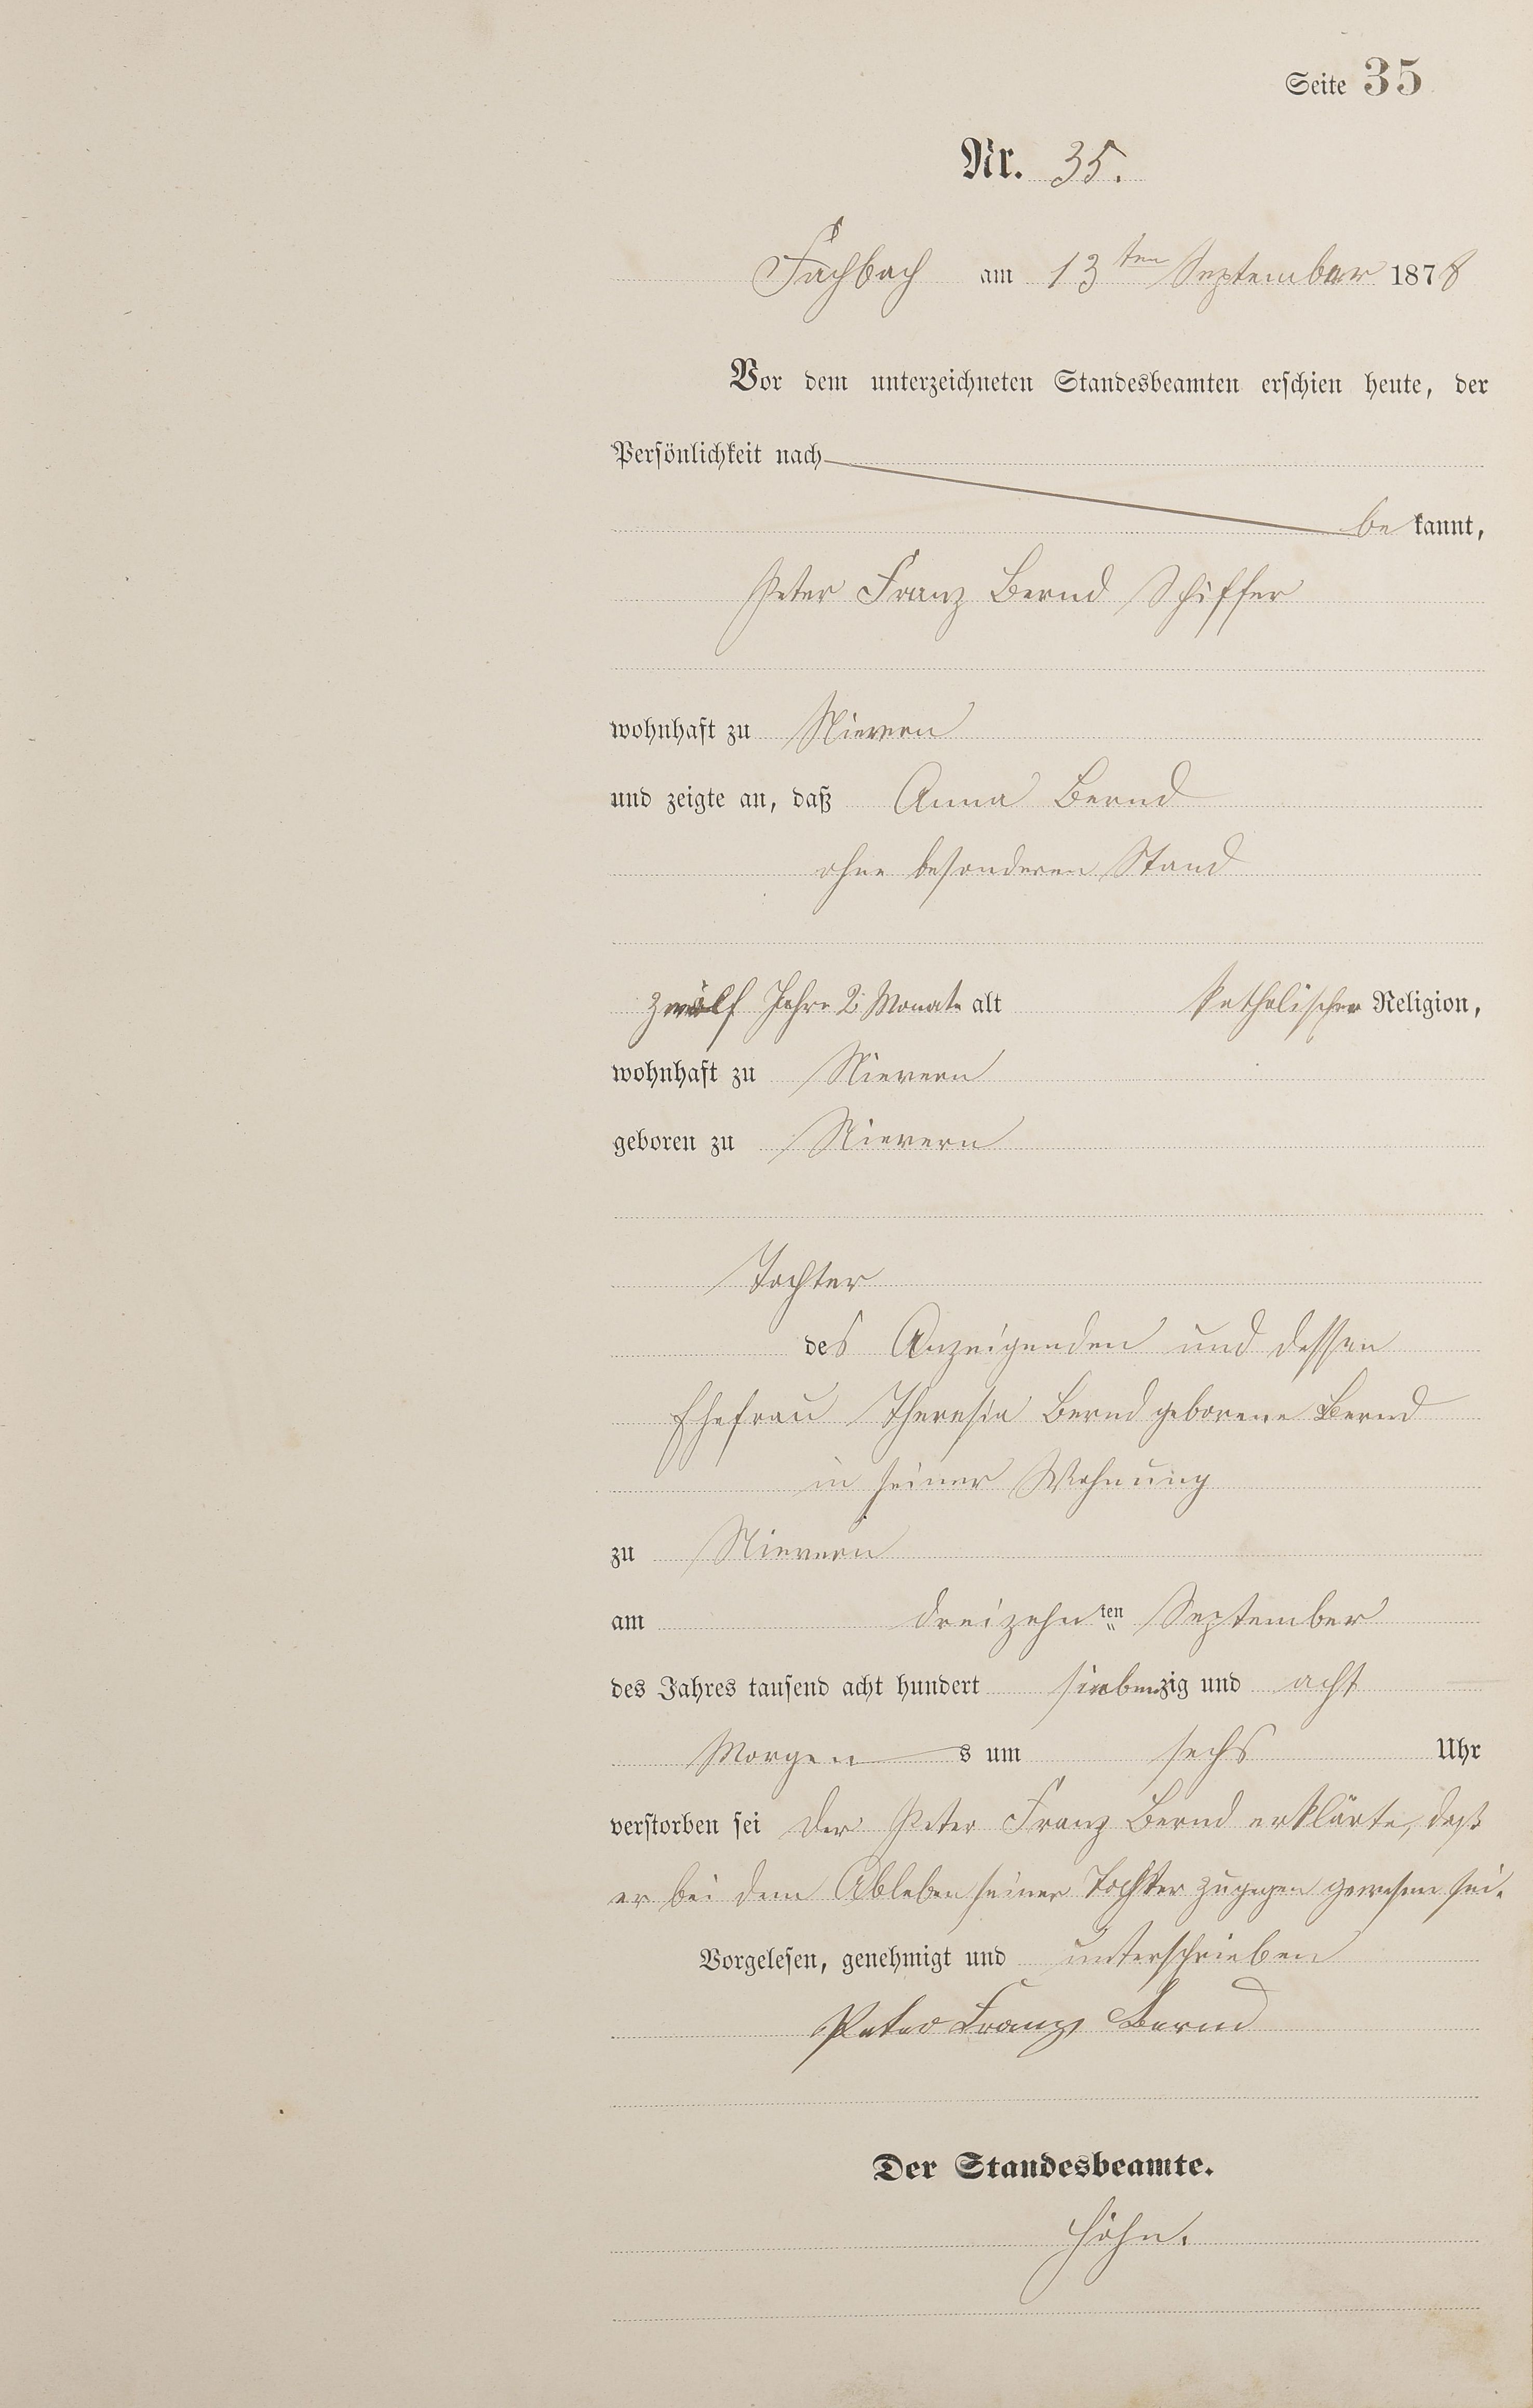 Seite 35
Nr. 35.
Fachbach am 13ten September 1878
Vor dem unterzeichneten Standesbeamten erschien heute, der
Persönlichkeit nach
be kannt,
Peter Franz Bernd Schiffer
wohnhaft zu Nievern
und zeigte an, daß Anna Bernd
ohne besonderen Stand
zwölf Jahre 2 Monate alt katholischer Religion,
wohnhaft zu Nievern
geboren zu Nievern
Tochter
des Anzeigenden und dessen
Ehefrau Theresia Bernd geborene Bernd
in seiner Wohnung
zu Nievern
am dreizehnten September
des Jahres tausend acht hundert siebenzig und acht
Morgens um sechs Uhr
verstorben sei Der Peter Franz Bernd erklärte, daß
er bei dem Ableben seiner Tochter zugegen gewesen sei.
Vorgelesen, genehmigt und unterschrieben
Peter Franz Bernd
Der Standesbeamte.
Höhn.